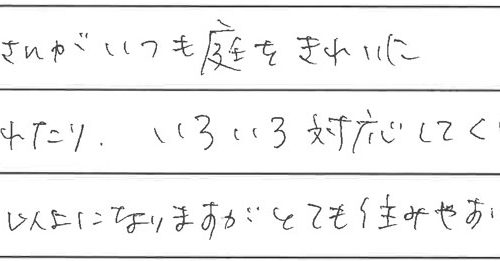 さんがいつも庭をきれいに
れたり、いろいろ対応してく
以上になりますがとても住みやすい